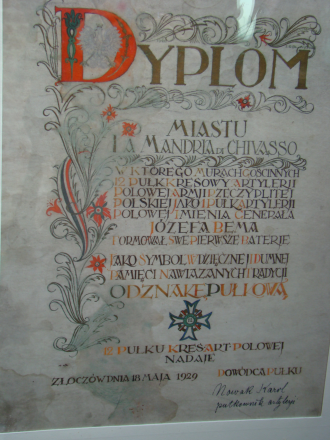 DYPLOM
MIASTU
LA MANDRIA DI CHIVASSO
W KTÓREGO MURACH GOŚCINNYCH
12 PUŁK KRESOWY ARTYLERJI
POLOWEJ ARMJI RZECZYPLITEJ
POLSKIEJ JAKO 1 PUŁK ARTYLERJI
POLOWEJ IMIENIA GENERAŁA
JÓZEFA BEMA
FORMOWAŁ SWE PIERWSZE BATERJE
JAKO SYMBOL WDZIĘCZNEJ I DUMNEJ
PAMIĘCI NAWIĄZANYCH TRADYCJI
ODZNAKĘ PUŁKOWĄ
12 PUŁKU KRES. ART. POLOWEJ
NADAJE
ZŁOCZÓW DNIA 18 MAJA 1929
DOWÓDCA PUŁKU
Nowak Karol
pułkownik artylerji